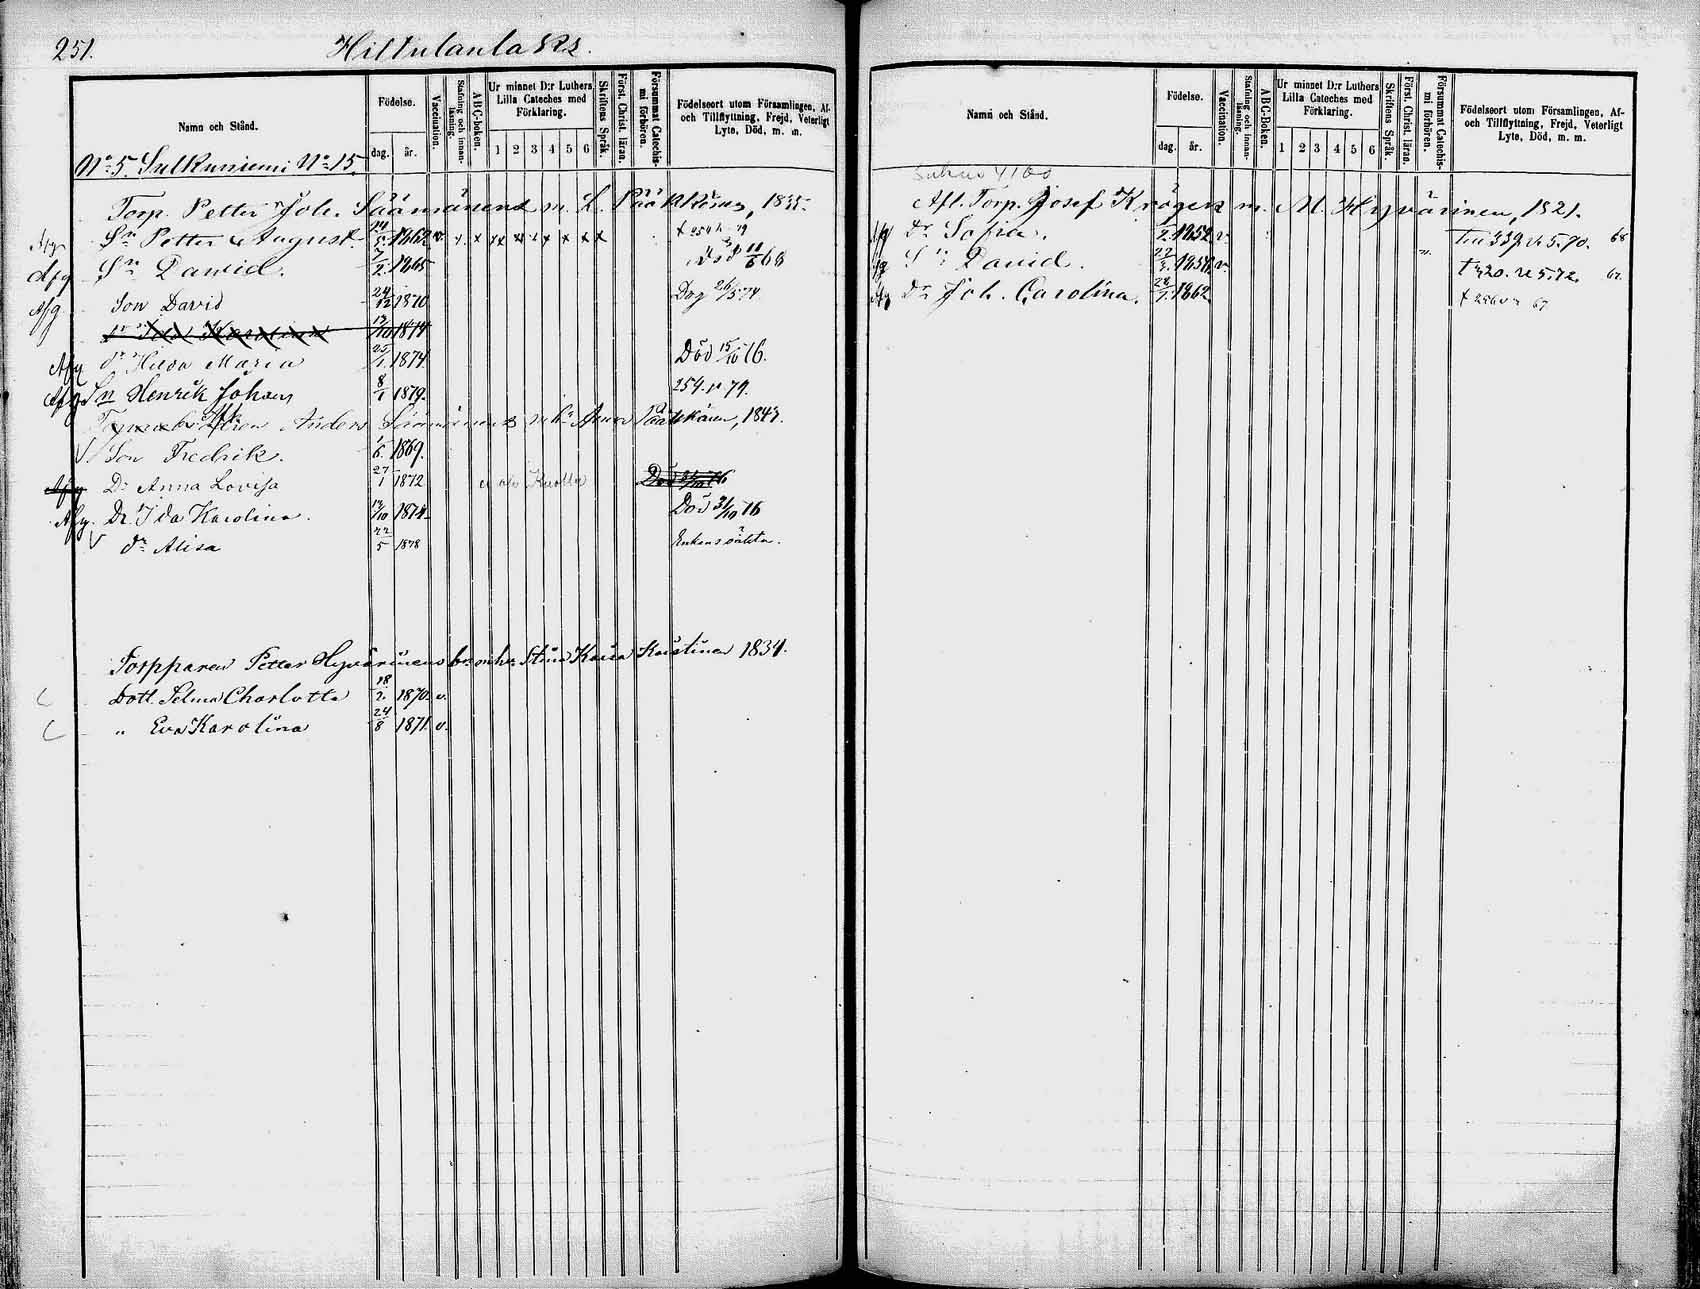 251.
Hiltulanlaks.
Namn och Stånd.
Födelse.
dag. år.
Vaccination.
Stafning och innanläsning.
ABC-boken.
Ur minnet D:r Luthers Lilla Cateches med Förklaring.
1 2 3 4 5 6
Skriftens Språk.
Först. Christ. läran.
Försummat Catechismi förhören.
Födelseort utom Församlingen, Af- och Tillflyttning, Frejd, Veterligt Lyte, Död, m. m.
No 5. Sulkuniemi No 15.
Torp. Petter Joh. Säämänens m. L. 1835.
Afg Sn Petter August. 14/5 1862 v. x x x x x x x x x † 254 79
Afg Sn Dawid. 7/2. 1865 Död 11/6 68
Afg Son David 24/12 1870 Dog 26/5 74
13/10 1874
Afg dr Hilda Maria 25/1. 1874. Död 15/10 76.
Afg Sn Henrik Johan 8/1 1879. 254. v. 79.
Anders Säämänens Anna Pääkkönen, 1843.
V Son Fredrik. 1/6. 1869.
Afg Dr Anna Lovisa 27/1 1872
Afg. Dr. Ida Karolina. 13/10 1874 Död 31/10 76
V dr Alisa 22/5 1878 Enkans oäkta.
Torpparen Petter Hyvärinens barn m. h. Stina Kaisa Kaistinen 1834.
Dott. Selma Charlotta 18/2. 1870. v.
" Eva Karolina 24/8 1871. v.
Namn och Stånd.
Födelse.
dag. år.
Vaccination.
Stafning och innanläsning.
ABC-boken.
Ur minnet D:r Luthers Lilla Cateches med Förklaring.
1 2 3 4 5 6
Skriftens Språk.
Först. Christ. läran.
Försummat Catechismi förhören.
Födelseort utom Församlingen, Af- och Tillflyttning, Frejd, Veterligt Lyte, Död, m. m.
Afl. Torp. Josef Krögers m. M. Hyvärinen, 1821.
Afg Dr Sofia. 1852. v. 339 v. 5. 70. 68
Sn David. 22/3. 1858. v. † 20. v. 5. 72. 62.
Afg Dr Joh. Carolina. 28/7. 1862. † 256 v. 67